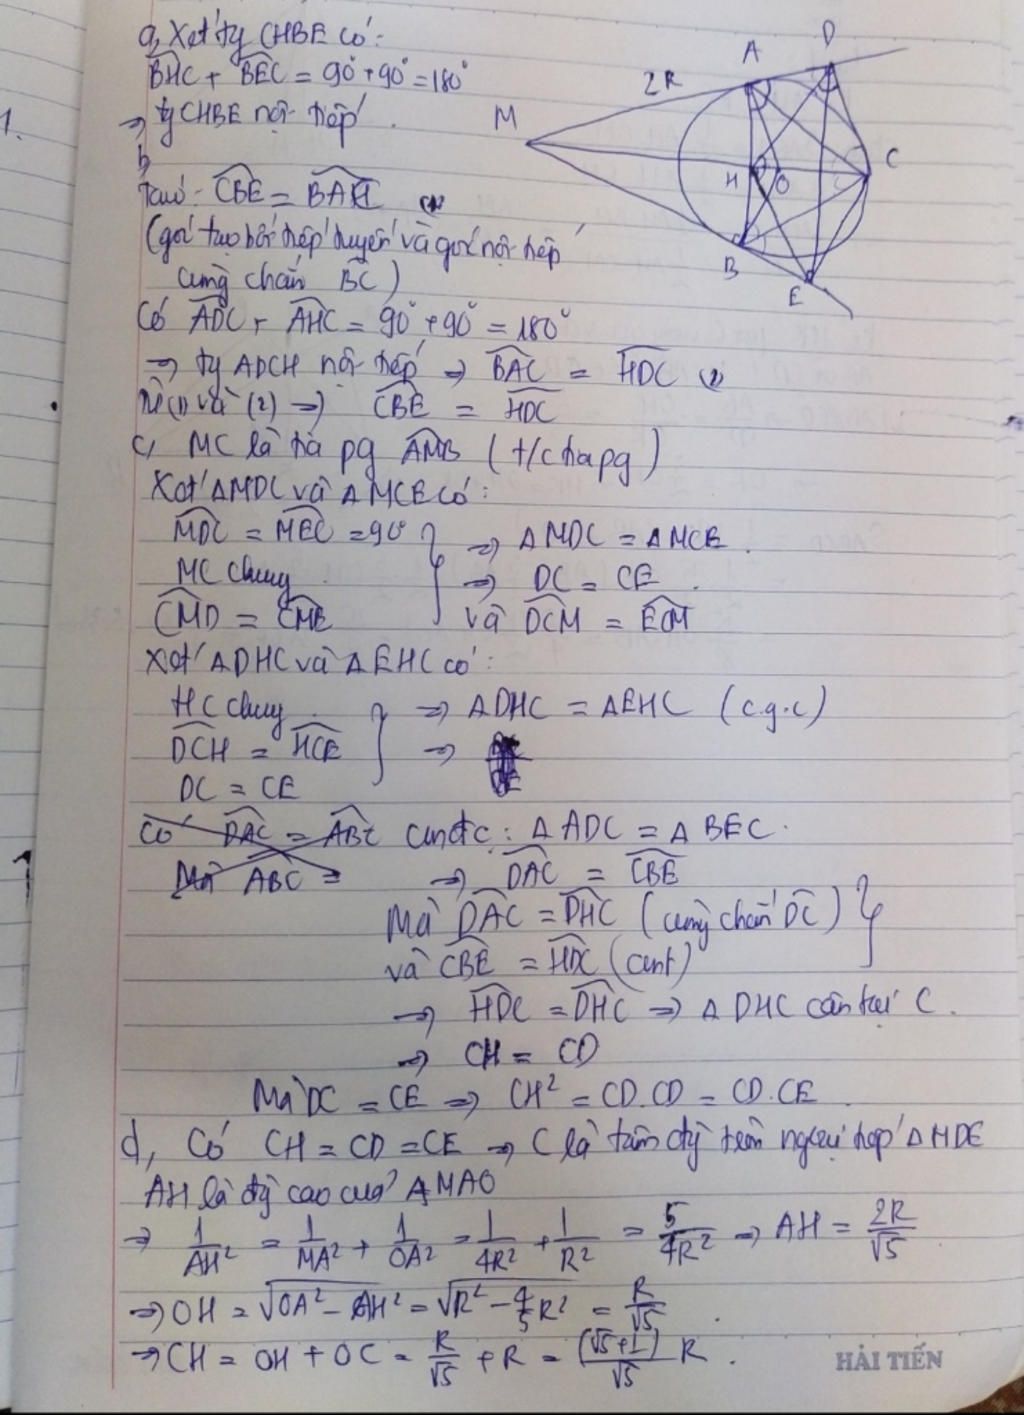 a, Xét tg CHBE có:
BHC + BEC = 90° + 90° = 180°
1.
⇒ tg CHBE nội tiếp.
b,
Ta có: CBE = BAC
(góc tạo bởi tiếp tuyến và góc nội tiếp
cùng chắn BC)
Có ADC + AHC = 90° + 90° = 180°
⇒ tg ADCH nội tiếp ⇒ BAC = HDC (2)
Từ (1) và (2) ⇒ CBE = HDC
c, MC là tia pg AMB (t/c tia pg)
Xét ΔMDC và ΔMCE có:
MDC = MEC = 90° ⇒ ΔMDC = ΔMCE.
MC chung ⇒ DC = CE.
CMD = CME và DCM = ECM
Xét ΔDHC và ΔEHC có:
HC chung ⇒ ΔDHC = ΔEHC (c.g.c)
DCH = HCE ⇒
DC = CE
Có DAC = ABC cmđc: ΔADC = ΔBEC.
Mà ABC = ⇒ DAC = CBE
Mà DAC = DHC (cùng chắn DC)
và CBE = HDC (cmt)
⇒ HDC = DHC ⇒ ΔDHC cân tại C.
⇒ CH = CD
Mà DC = CE ⇒ CH² = CD.CD = CD.CE.
d, Có CH = CD = CE ⇒ C là tâm đg tròn ngoại tiếp ΔHDE
AH là đg cao của ΔMAO
⇒ 1/AH² = 1/MA² + 1/OA² = 1/4R² + 1/R² = 5/4R² ⇒ AH = 2R/√5
⇒ OH = √OA² - AH² = √R² - 4/5 R² = R/√5.
⇒ CH = OH + OC = R/√5 + R = (√5+1)/√5 R.
HẢI TIẾN
A
D
2R
M
H
O
C
B
E